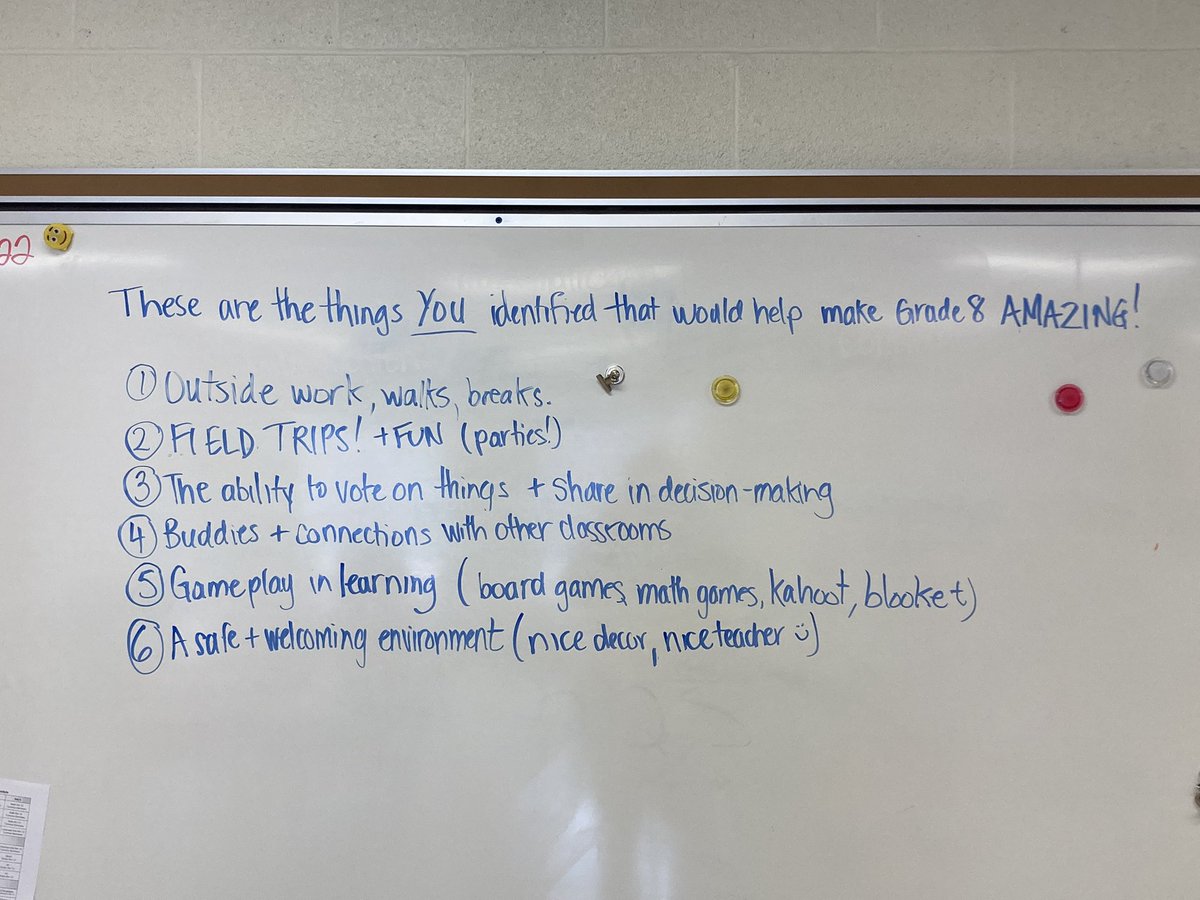 22
These are the things YOU identified that would help make Grade 8 AMAZING!
① Outside work, walks, breaks.
② FIELD TRIPS! + FUN (parties!)
③ The ability to vote on things + share in decision-making
④ Buddies + connections with other classrooms
⑤ Gameplay in learning (board games, math games, Kahoot, blooket)
⑥ A safe + welcoming environment (nice decor, nice teacher :))